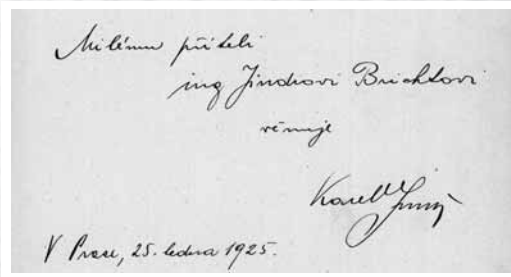 Milému příteli
ing Jindrovi Brichtovi
věnuje
Karel
V Praze, 25. ledna 1925.